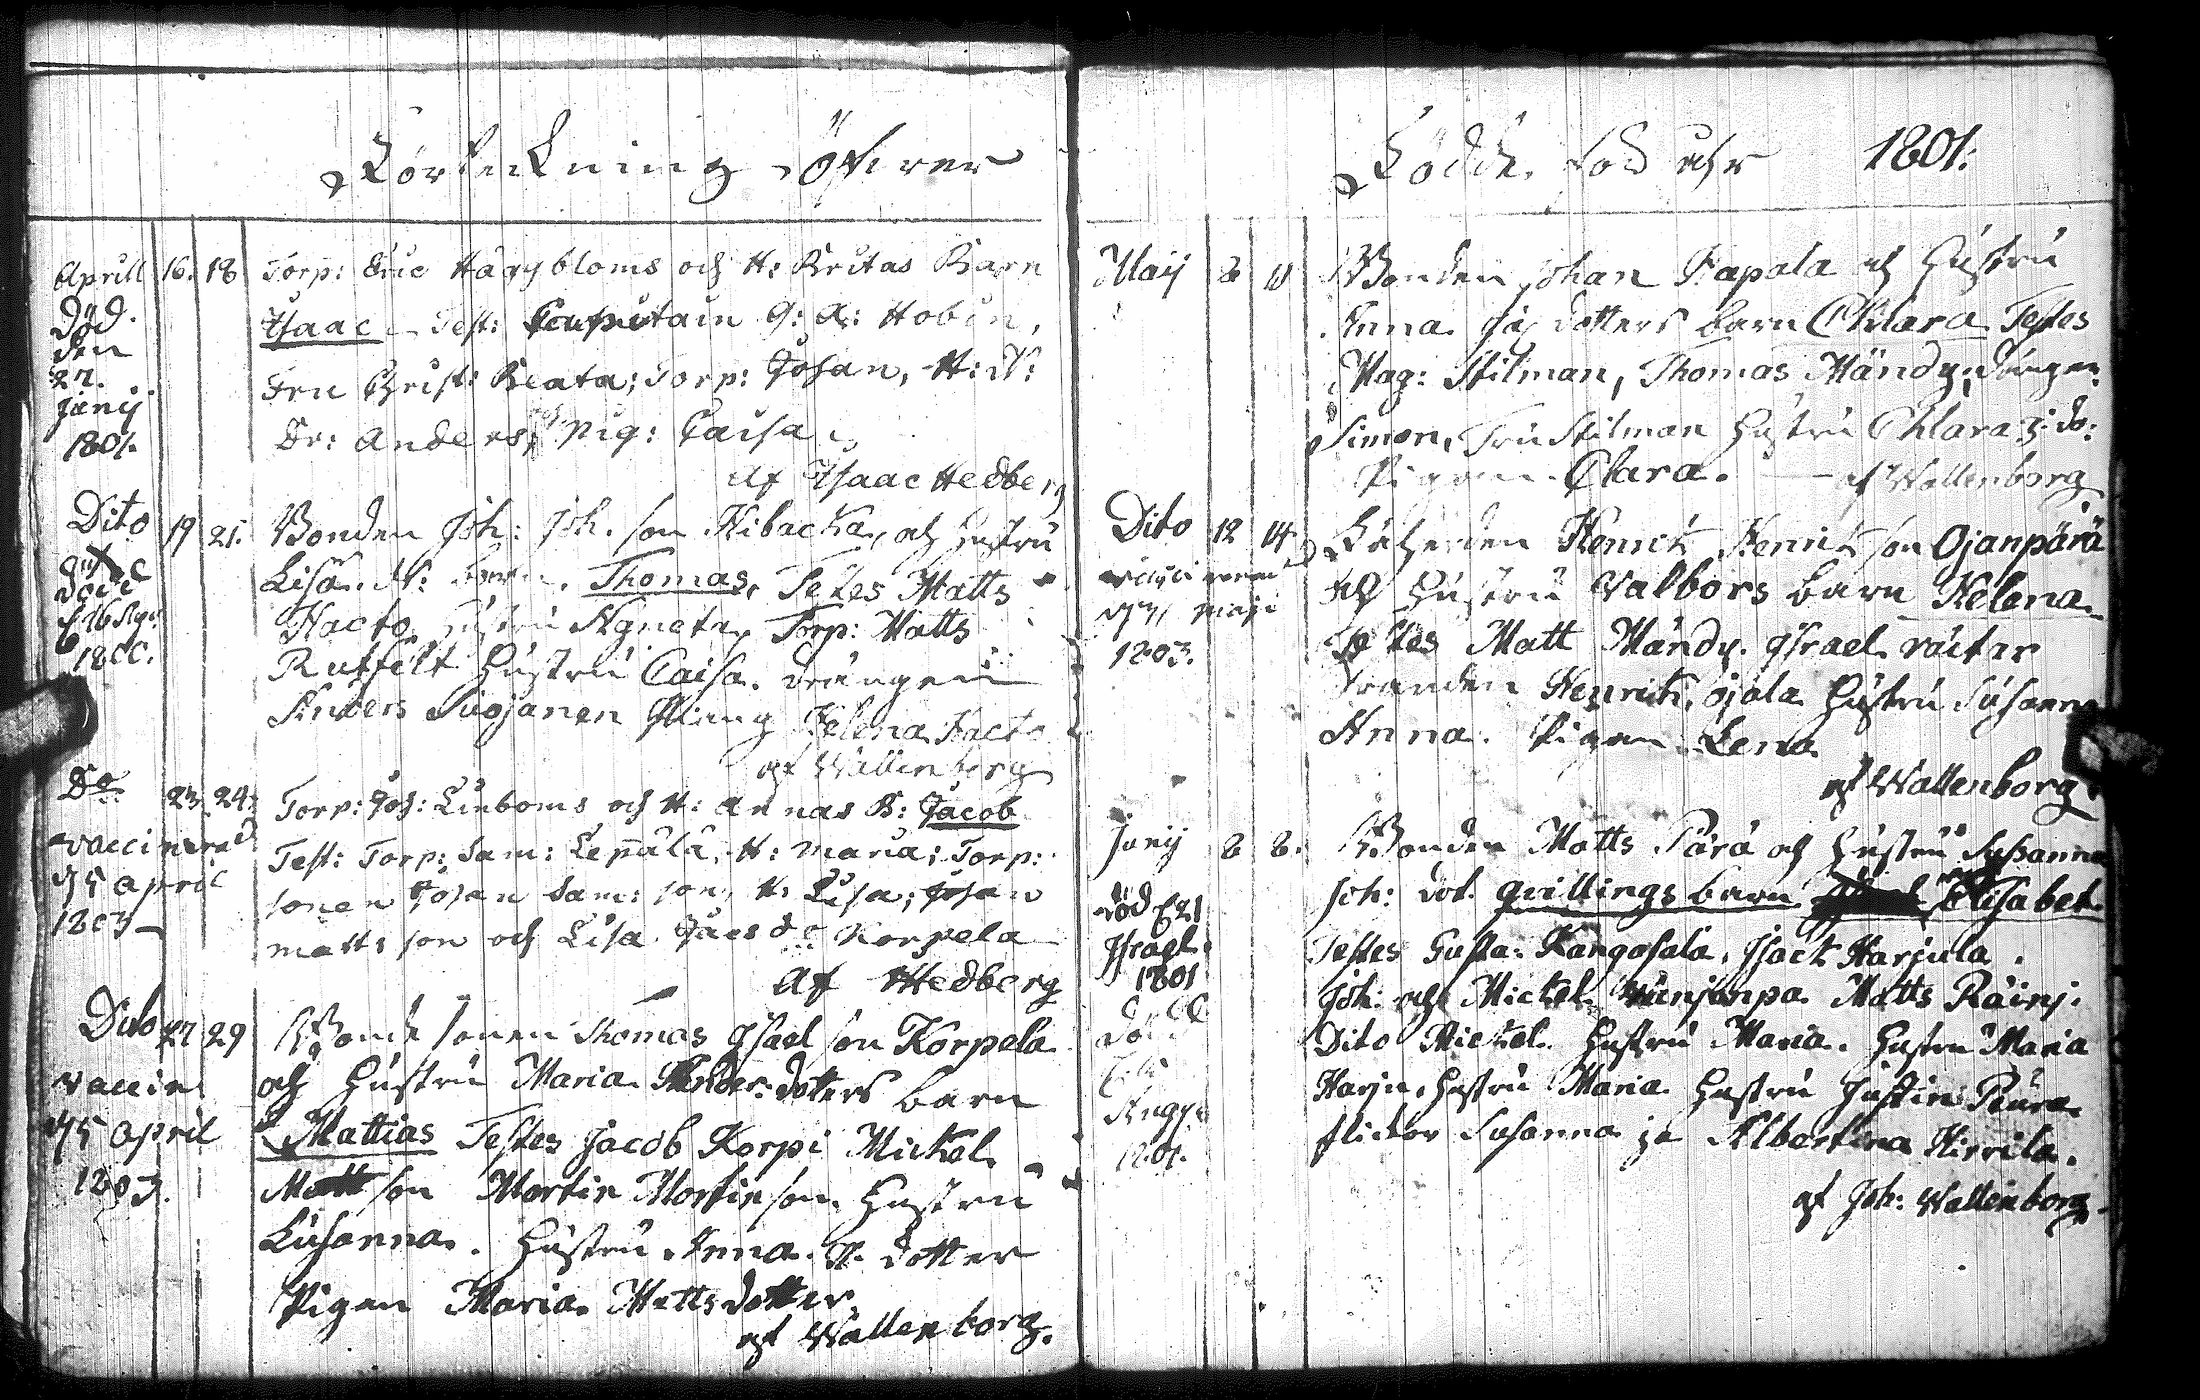 Förteckning öfver
Aprill 16. 18 Torp: Eric Häggbloms och H: Britas Barn
Död.
den
27.
Junij
1801.
Isaac Test: G: A: Hobin,
Fru Christ: Beata; Torp: Johan, H: N:
Dr: Anders, Pig: Caisa
Af Isaac Hedberg
Dito 19 21. Bonden Joh: Joh. son Hibacka, och Hustru
Lisa M: barn. Thomas, Testes Matts
död
1800.
Hacto Hustru Agneta, Torp: Matts
Rutfelt Hustru Caisa. drängen
Anders Suojanen Helena Hacto
af Wallenborg
Do 23 24. Torp: Joh: Linboms och H: Annas B: Jacob
vaccinerad
d 5 april
1803
Test: Torp: Sam: Leppälä, H: Maria; Torp:
sonen Johan Sam: son, H: Lisa; Johan
Matts son och Lisa Jacs do Korpela
Af Hedberg
Dito 27 29 Bonde sonen Thomas Israel son Korpela
vaccin
d 5 april
1803.
och Hustru Maria Ander: dotters barn
Mattias Testes Jacob Korpi Mickel
Matt son Mortin Mortin son. Hustru
Susanna. Hustru Anna. M. dotter
Pigan Maria Matts dotter
af Wallenborg.
Födde fod åhr 1801:
Maij 8 11 Bonden Johan Papala och Hustru
Anna Jac dotters barn Chlara Testes
Mag: Stilman, Thomas Mändy, drängen
Simon, Fru Stilman Hustru Chlara do:
Pigan Clara. af Wallenborg
Dito 12 14 Båtherden Henrich Henrich son Ojanpärä
maji
1803.
och Hustru Valbors barn Helena
Testes Matt Mändy. Israel
Henrich Ojala Hustru Susanna
Anna. Pigan Lena
af Wallenborg
Junij 8 8. Bonden Matts Pärä och Hustru Susanna
Joh: dot. qvillings barn Elisabet.
död 21
Israel
1801
död
Aug:
1801.
Testes Gusta: Kangosala, Isack Harjula.
Joh: och Mickel Matts Räinj.
Dito Mickel. Hustru Maria. Hustru Maria
Harju, Hustru Maria Hustru Justina Peura
flickor Susanna ja Albertina Hirvila.
af Joh: Wallenborg